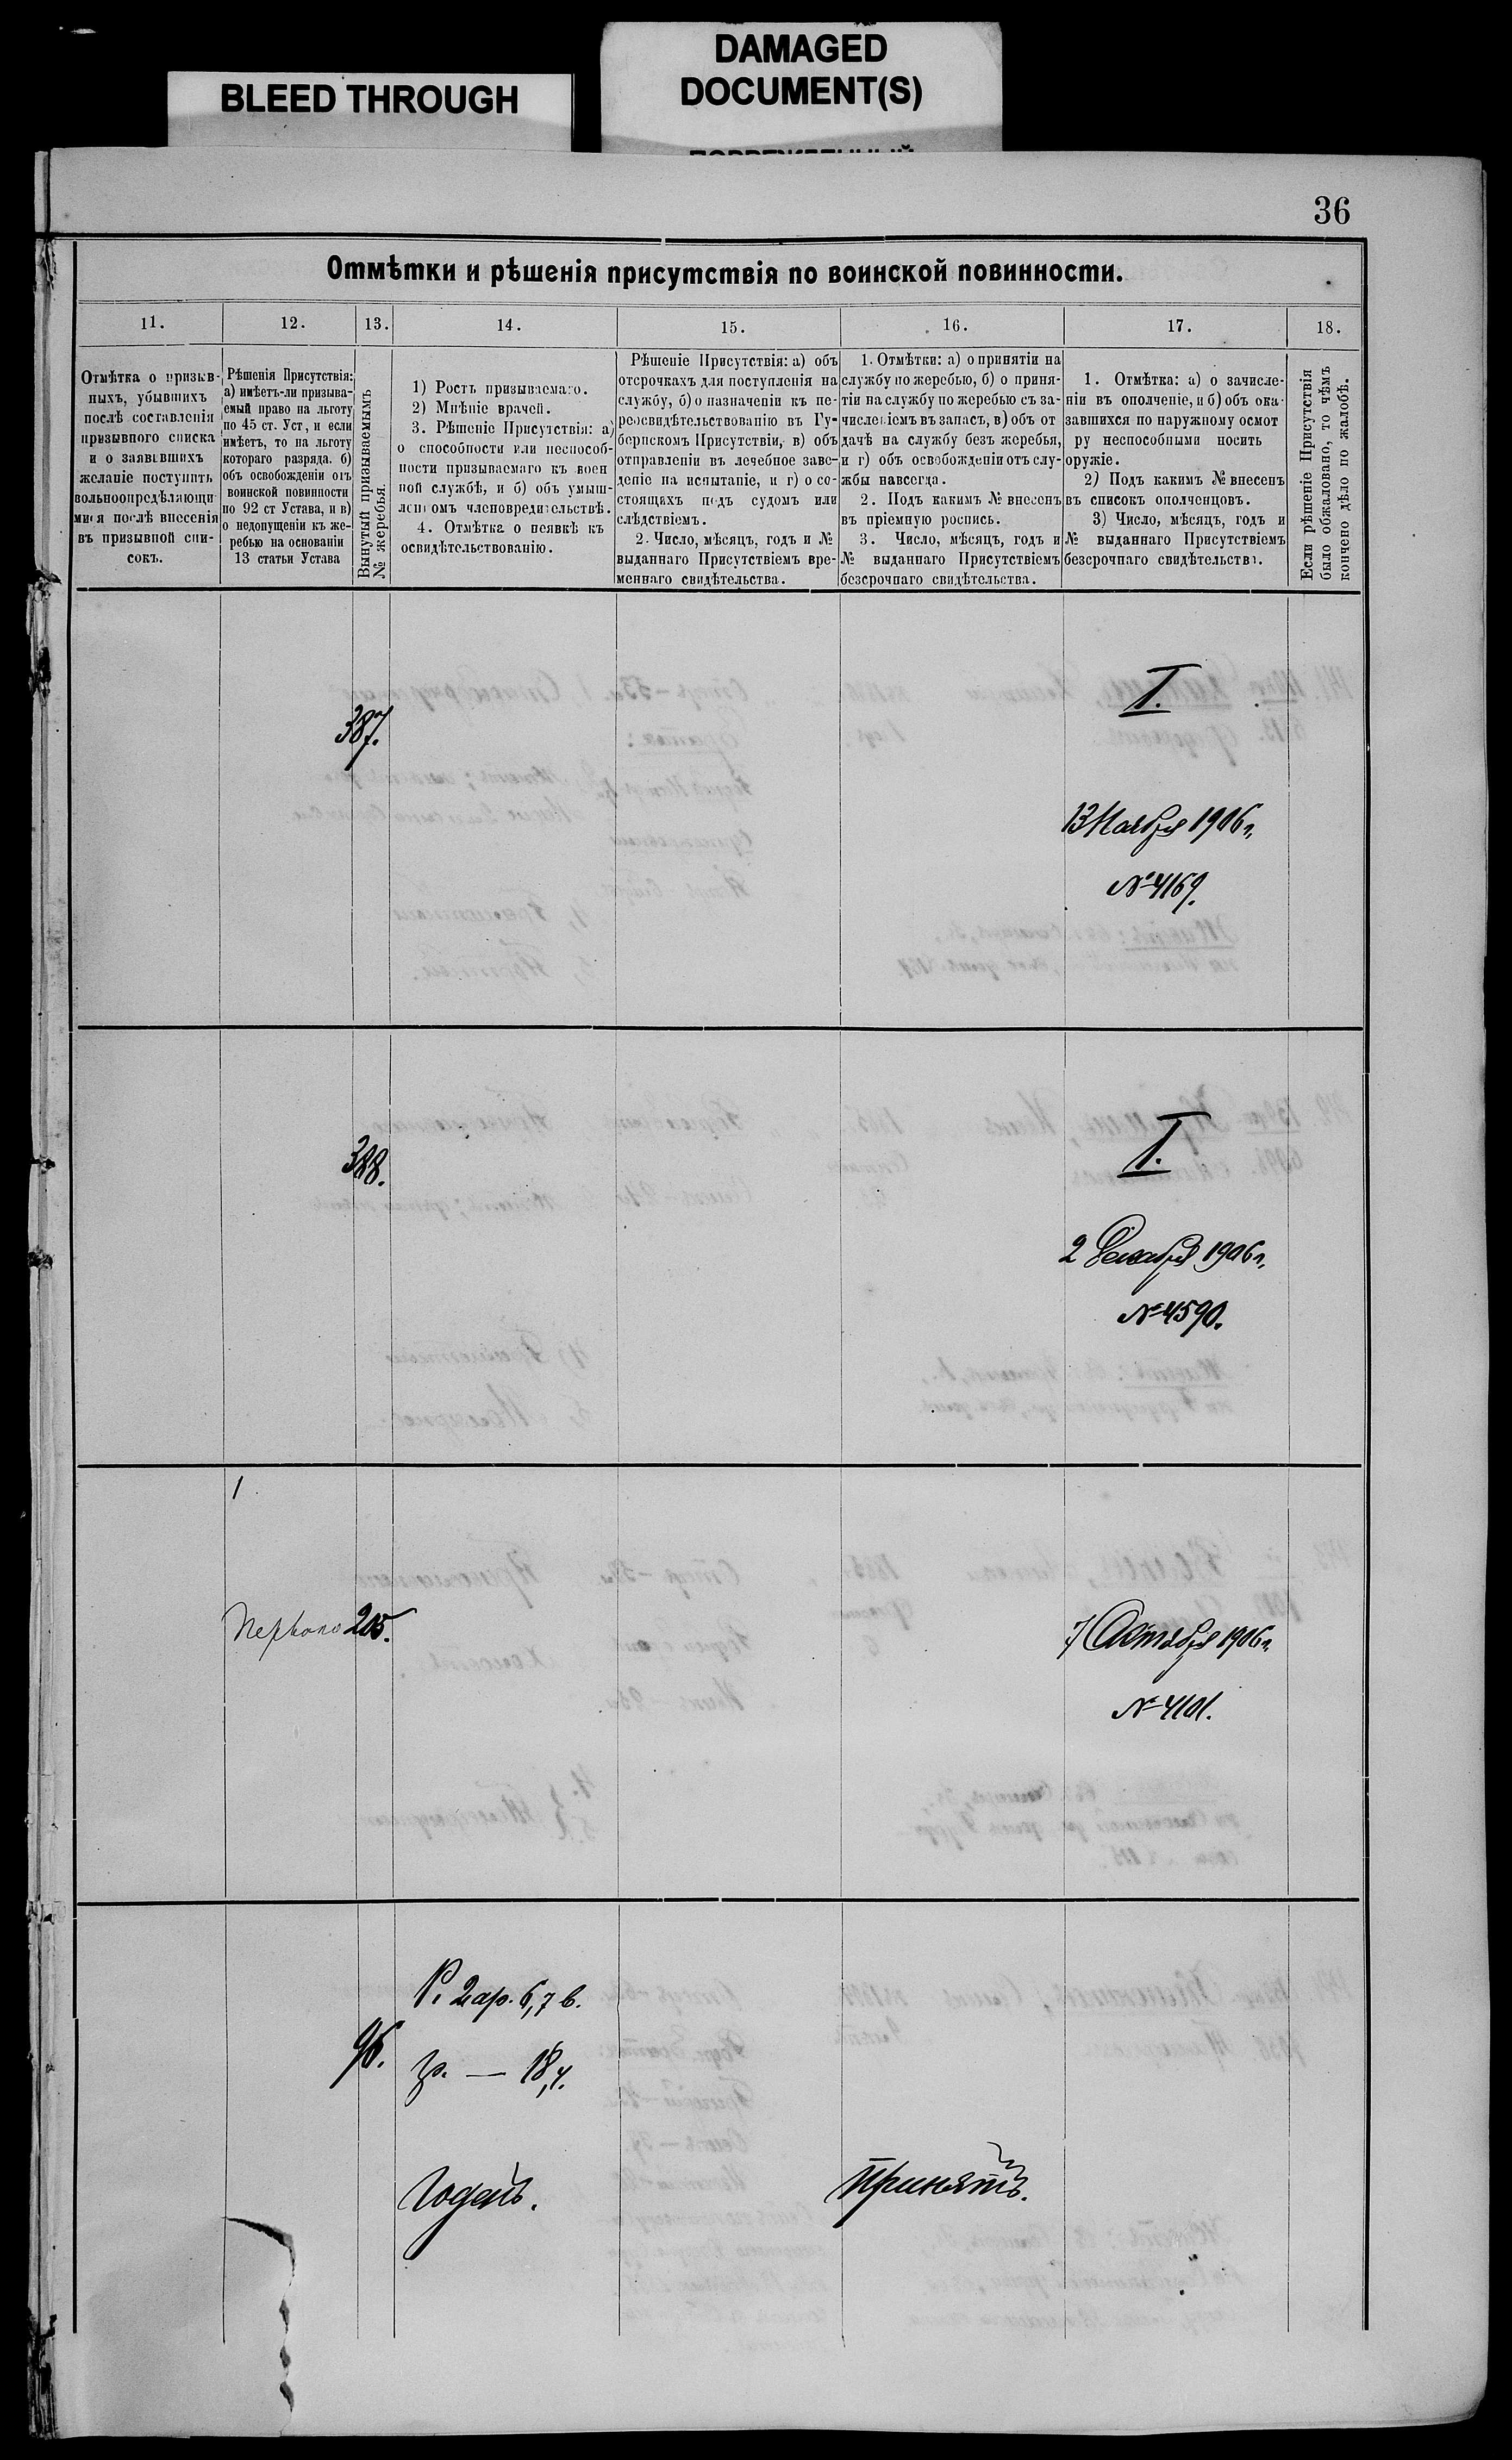 BLEED THROUGH
DAMAGED
DOCUMENT(S)
36
Отмѣтки и рѣшенія присутствія по воинской повинности.
11.
12.
13.
14.
15.
16.
17.
18.
Отмѣтка о призыв-
ныхъ, убывшихъ
послѣ составленія
призывного списка
и о заявившихъ
желаніе поступить
вольноопредѣляющи
мися послѣ внесенія
въ призывной спи-
сокъ.
Рѣшенія Присутствія:
а) имѣетъ-ли призыва-
емый право на льготу
по 45 ст. Уст, и если
имѣетъ, то на льготу
котораго разряда. б)
объ освобожденіи отъ
воинской повинности
по 92 ст Устава, и в)
о недопущеніи къ же-
ребью на основаніи
13 статьи Устава
Вынутый призываемымъ
№ жеребья.
1) Ростъ призываемаго.
2) Мнѣніе врачей.
3. Рѣшеніе Присутствія: а)
о способности или неспособ-
ности призываемаго къ воен
ной службѣ, и б) объ умыш-
леномъ членовредительствѣ.
4. Отмѣтка о неявкѣ къ
освидѣтельствованію.
Рѣшеніе Присутствія: а) объ
отсрочкахъ для поступленія на
службу, б) о назначеніи къ пе-
реосвидѣтельствованію въ Гу-
бернскомъ Присутствіи, в) объ
отправленіи въ лечебное заве-
деніе на испытаніе, и г) о со-
стоящахъ подъ судомъ или
слѣдствіемъ.
2. Число, мѣсяцъ, годъ и №
выданнаго Присутствіемъ вре-
меннаго свидѣтельства.
1. Отмѣтки: а) о принятіи на
службу по жеребью, б) о приня-
тіи на службу по жеребью съ за-
численіемъ въ запасъ, в) объ от
дачѣ на службу безъ жеребья,
и г) объ освобожденіи отъ слу-
жбы навсегда.
2. Подъ какимъ № внесенъ
въ пріемную роспись.
3. Число, мѣсяцъ, годъ и
№ выданнаго Присутствіемъ
безсрочнаго свидѣтельства.
1. Отмѣтка: а) о зачисле-
ніи въ ополченіе, и б) объ ока-
завшихся по наружному осмот
ру неспособными носить
оружіе.
2) Подъ какимъ № внесенъ
въ списокъ ополченцовъ.
3) Число, мѣсяцъ, годъ и
№ выданнаго Присутствіемъ
безсрочнаго свидѣтельства.
Если рѣшеніе Присутствія
было обжаловано, то чѣмъ
кончено дѣло по жалобѣ.
I.
387.
13 Ноября 1906 г.
№ 4169.
I.
388.
2 Декабря 1906 г.
№ 4590.
1
205.
7 Октября 1906 г.
№ 4101.
Р. 2 ар. 6,7 в.
96.
гр. — 18,4.
Годенъ.
Принятъ.